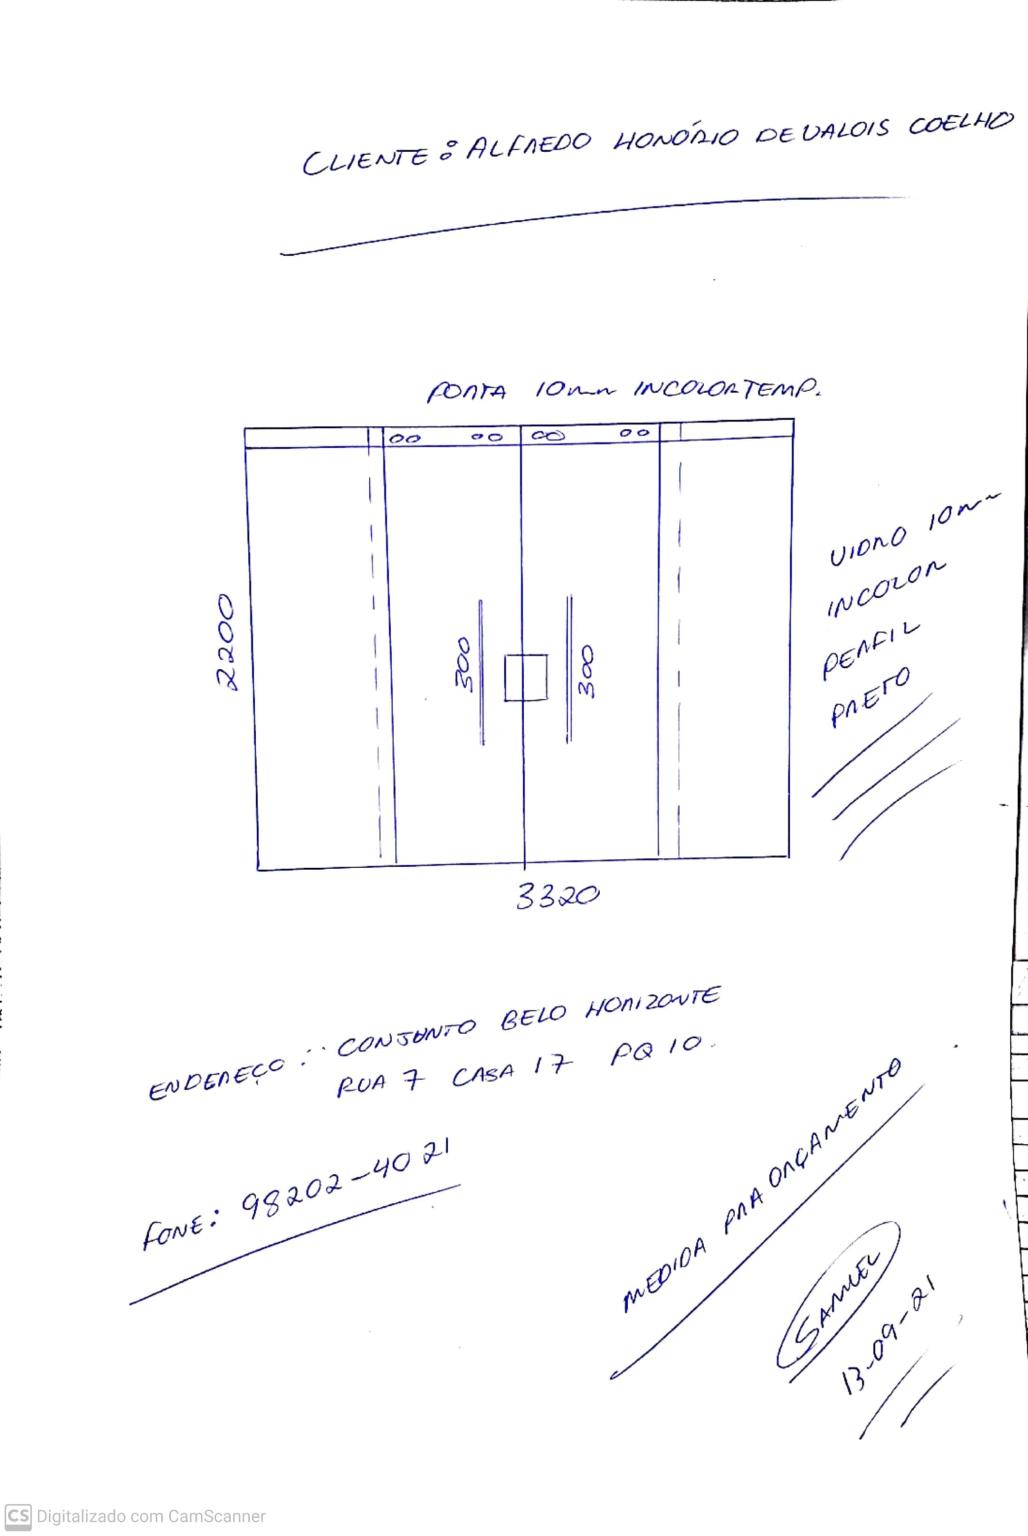 CLIENTE: ALFREDO HONÓRIO DEVALOIS COELHO
PORTA 10mm INCOLOR TEMP.
2200
300
300
3320
VIDRO 10mm
INCOLOR
PERFIL
PRETO
ENDEREÇO: CONJUNTO BELO HORIZONTE
RUA 7 CASA 17 PQ 10.
FONE: 98202-4021
MEDIDA PRA ORÇAMENTO
SAMUEL
13-09-21
CS Digitalizado com CamScanner